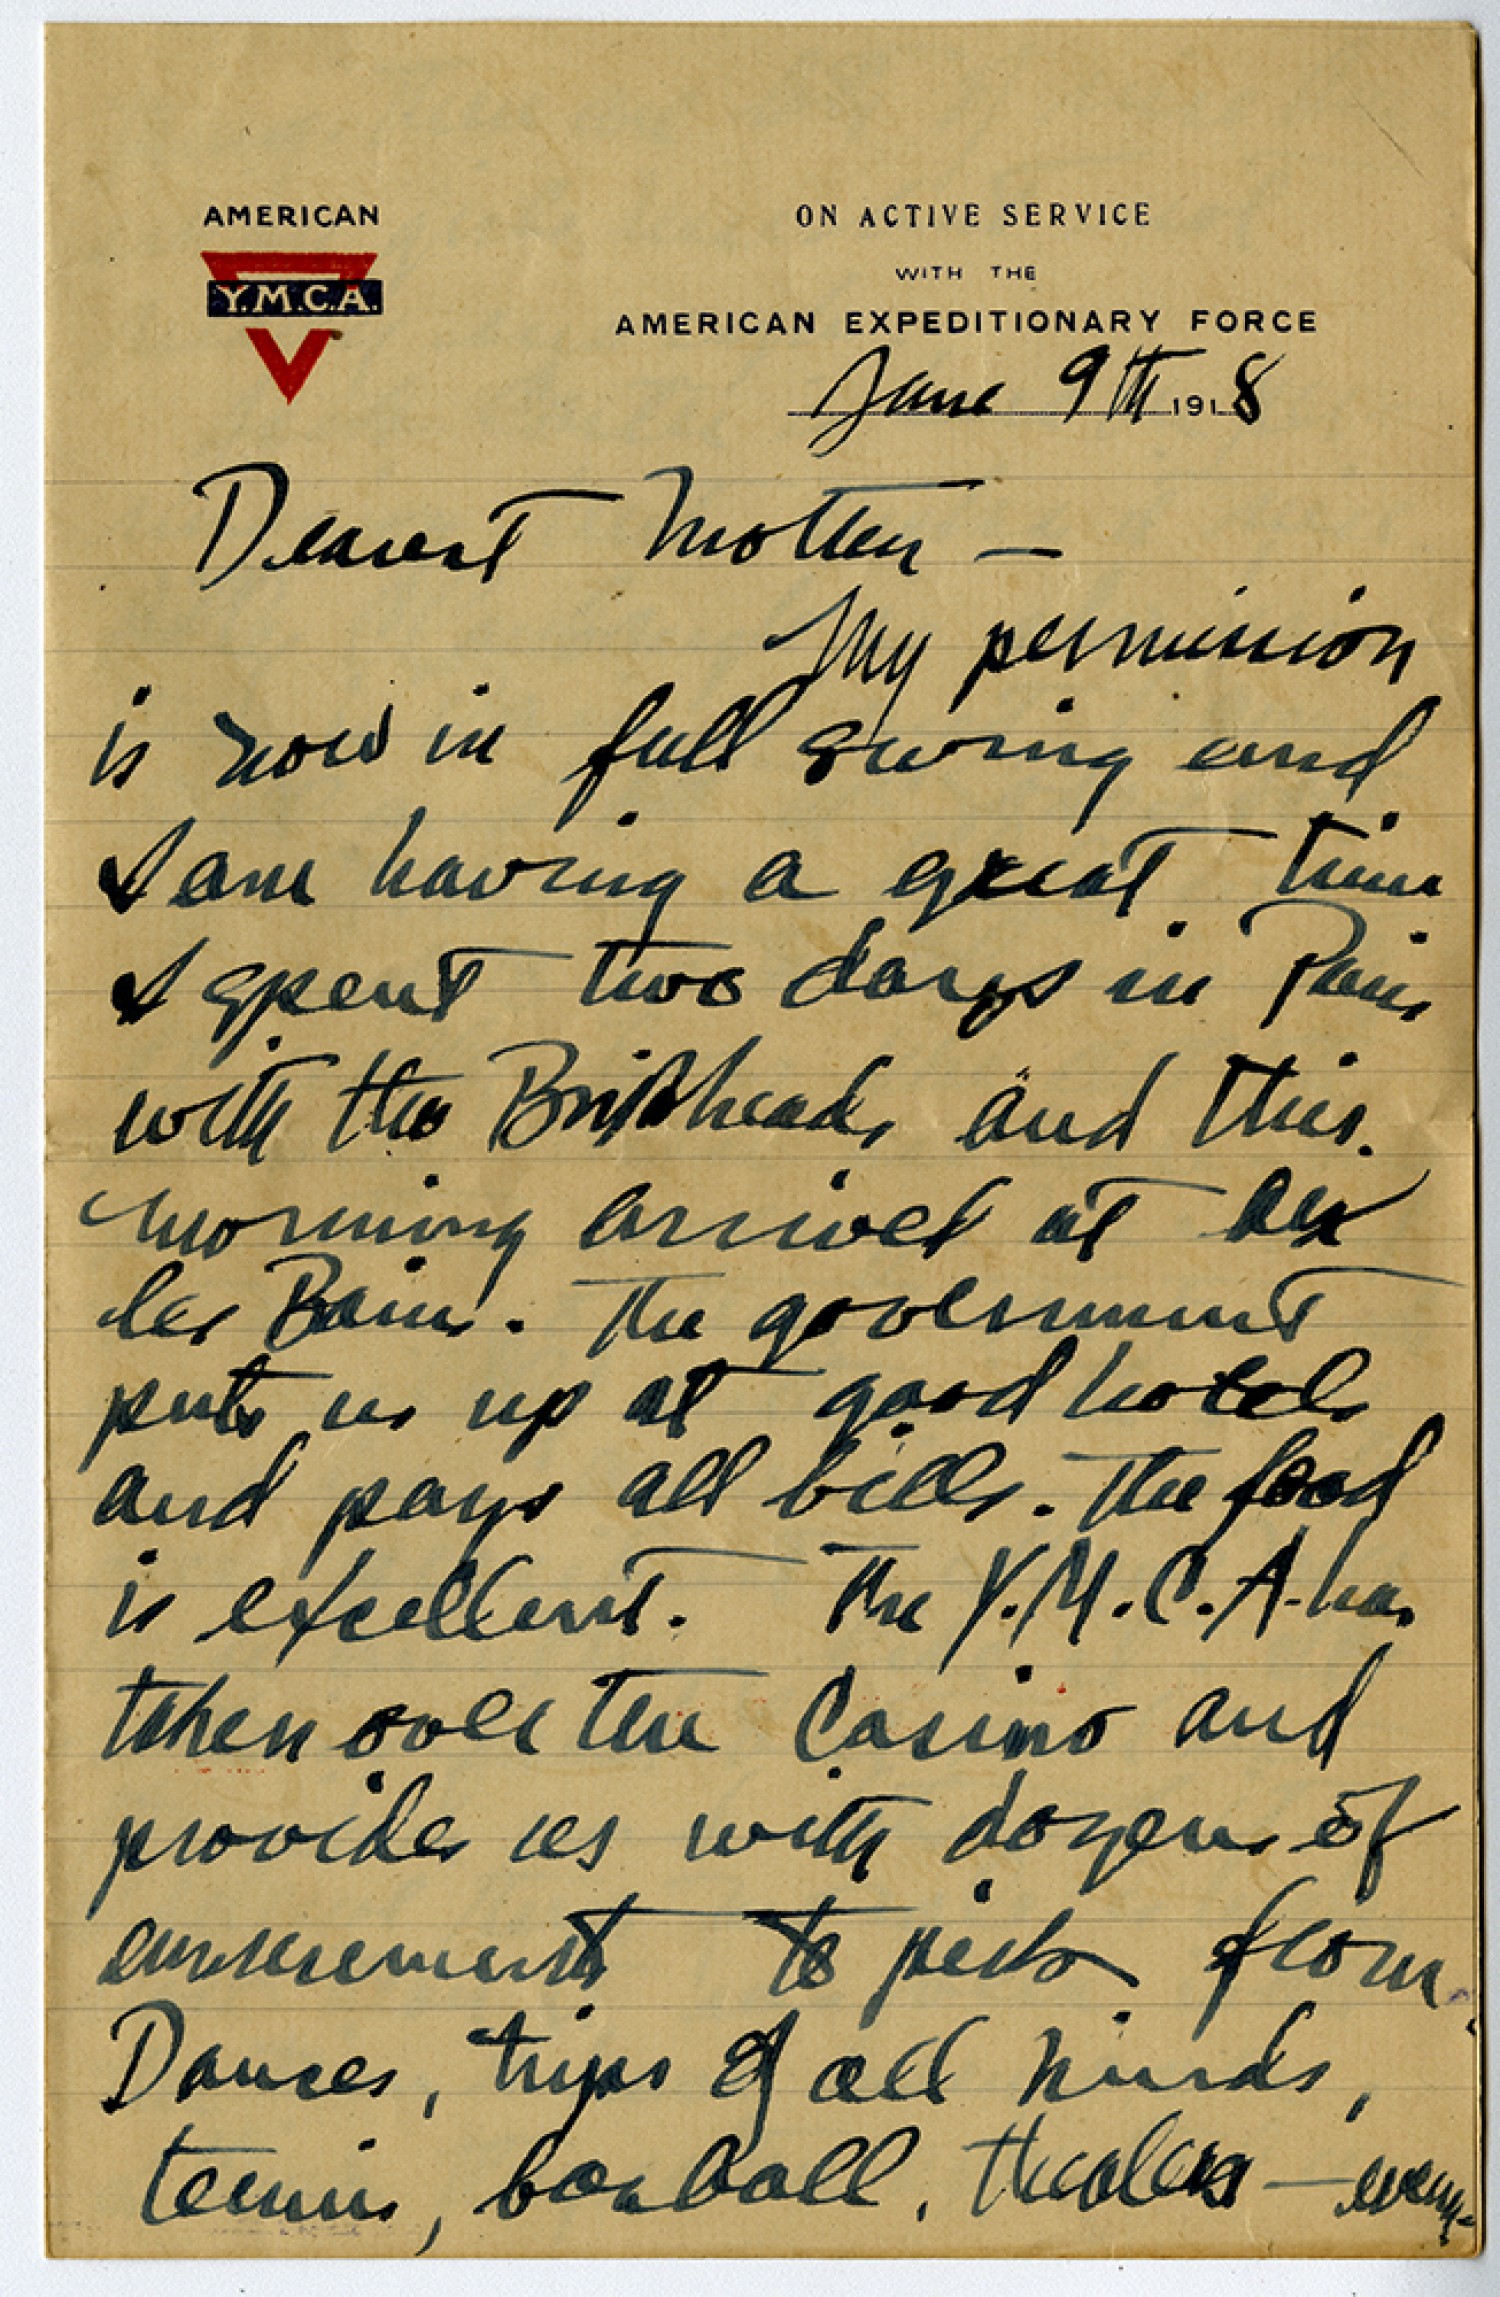 AMERICAN
Y.M.C.A.
ON ACTIVE SERVICE
WITH THE
AMERICAN EXPEDITIONARY FORCE
June 9th 1918
Dearest Mother —
My permission
is now in full swing and
I am having a great time
I spent two days in Paris
with the and this
morning arrived at Aix
les Bains. The government
puts us up at good hotels
and pays all bills. The food
is excellent. The Y.M.C.A. has
taken over the Casino and
provides us with dozens of
amusements to pick from.
Dances, trips of all kinds,
tennis, baseball, theaters — every-